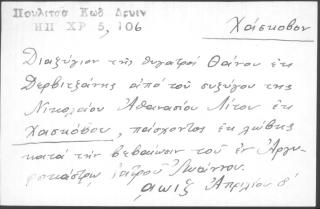 Πουλίτσα Κωδ Δρυιν
ΗΠ ΧΡ 5, 106
Χάσκοβον
Διαζύγιον τῆς θυγατρὸς Θάνου ἐκ
Δερβιτζάνης ἀπὸ τοῦ συζύγου της
Νικολάου Ἀθανασίου Λίτου ἐκ
Χασκόβου, πάσχοντος ἐκ λώβης
κατὰ τὴν βεβαίωσιν τοῦ ἐν Ἀργυ-
ροκάστρῳ ἰατροῦ Ἰωάννου.
αωιξ Ἀπριλίου δ'